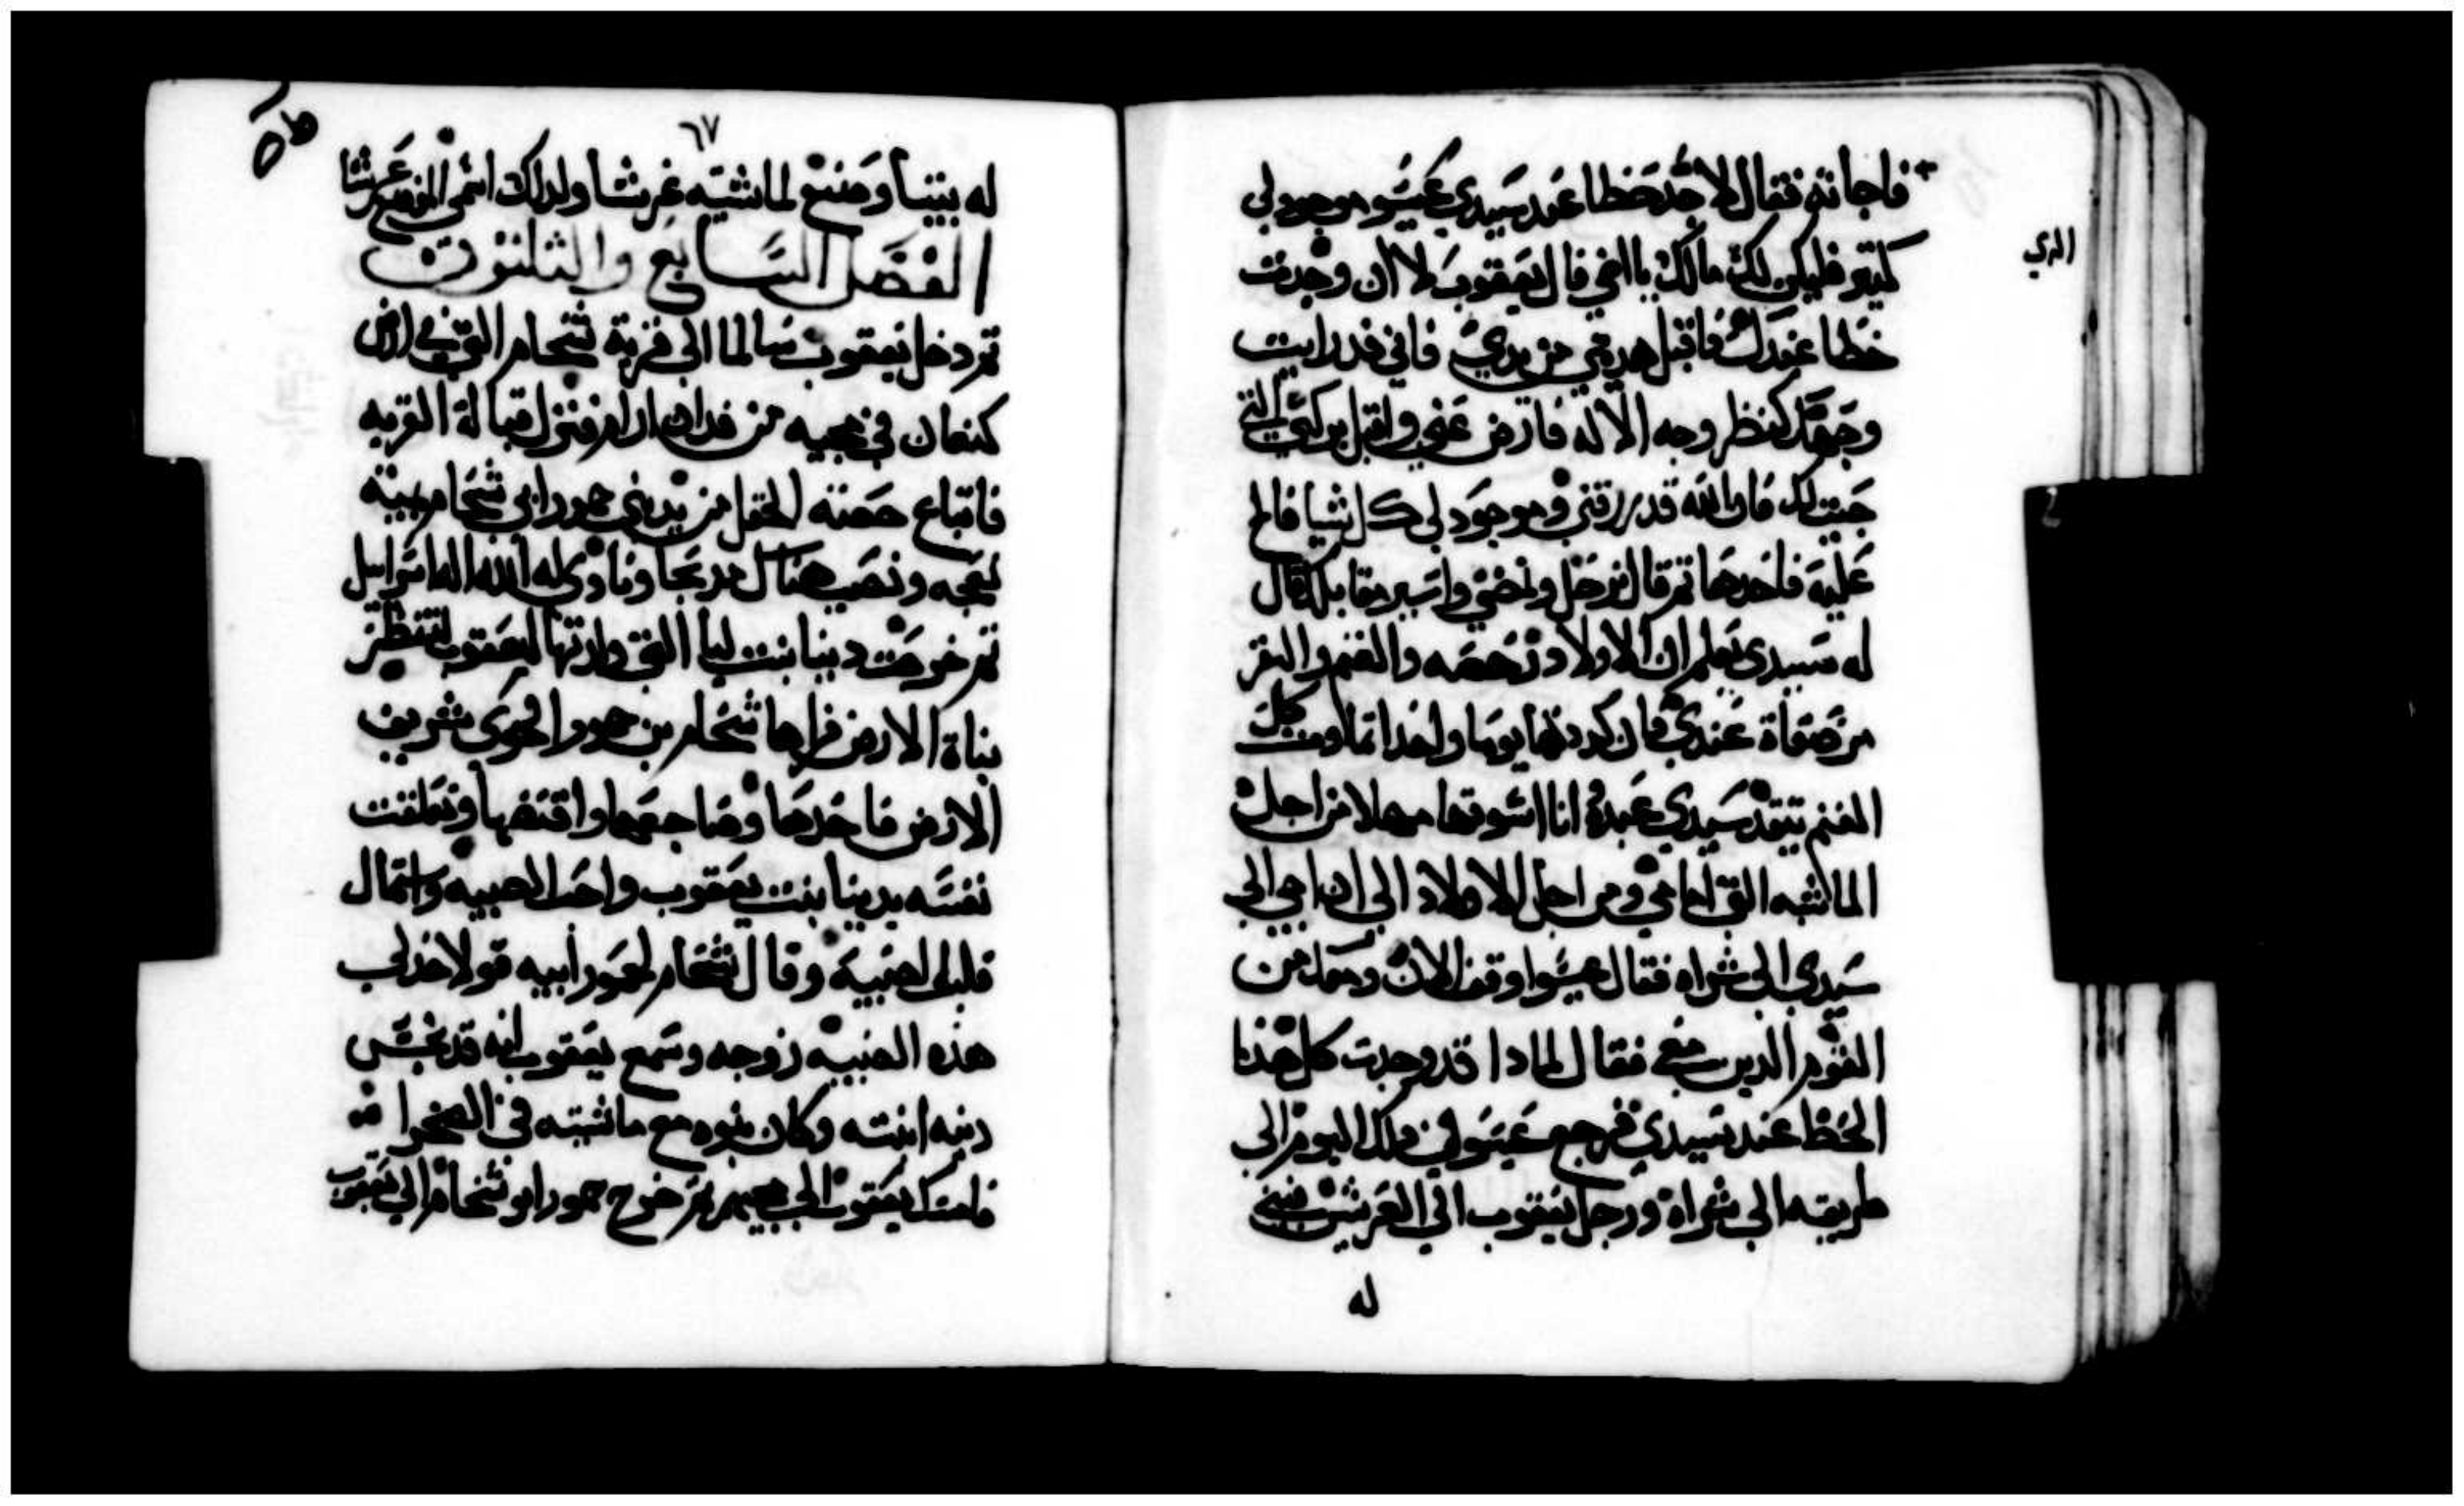 فاجابه فقال لاجد حظا عند سيدي عيسو موجود لي
الدي
كتير فليكن لك مالك يا اخي قال يعقوب لا ان وجدت
حظا عندك فاقبل هديتي من يدي فاني قد رايت
وجهك كنظر وجه الاله فارض عني واقبل بركتي التي
جبت لك فان الله قد رزقني وموجود لي كل شيا فالح
عليه فاخدها تم قال نرحل ونمضي واسير مقابلك قال
له سيدي يعلم ان الاولاد رخصه والغنم والبقر
مرضعاة عندي فان كددتها يوما واحدا تماوت كل
الغنم يتقد سيدي عبده انا اسوقها مهلا من اجل
الماشيه التي امامي ومن اجل الاولاد الى ان اجي الى
سيدي الى شراه فقال عيسوا وقف الان دهمك من
القوم الدين معي فقال لمادا قد وجدت كل هدا
الحظ عند سيدي فرجع عيسو في دلك اليوم الى
طريقه الى شراه ورحل يعقوب الى العريشت فبني
له
٦٧
له بيتا وصنع لماشيته عرشا ولدلك اسمى الموضع عرشا
الفصل السابع والتلتون
تم دخل يعقوب سالما الى قرية شخام التي في ارض
كنعان في مجيه من فدان ارام فنزل قبالة القريه
فابتاع حصته الحقل من يد بني حمور ابي شخام بمية
نعجه ونصب هناك مدبحا ونادى له الله اله اسراييل
تم خرجت دينا بنت ليا التي ولدتها ليعقوب لتنظر
بناة الارض فراها شخام بن حمور الحوي شريف
الارض فاخدها وضاجعها وافتضها وتعلقت
نفسه بدينا بنت يعقوب واحب الصبيه واستمال
قلب الصبية وقال شخام لحمور ابيه قولا خد لي
هذه الصبيه زوجه وسمع يعقوب انه قد نجس
دينه ابنته وكان بنوه مع ماشيته في الصحرا
فامسك يعقوب الى مجيهم تم خرج حمور ابو شخام الى يعقوب